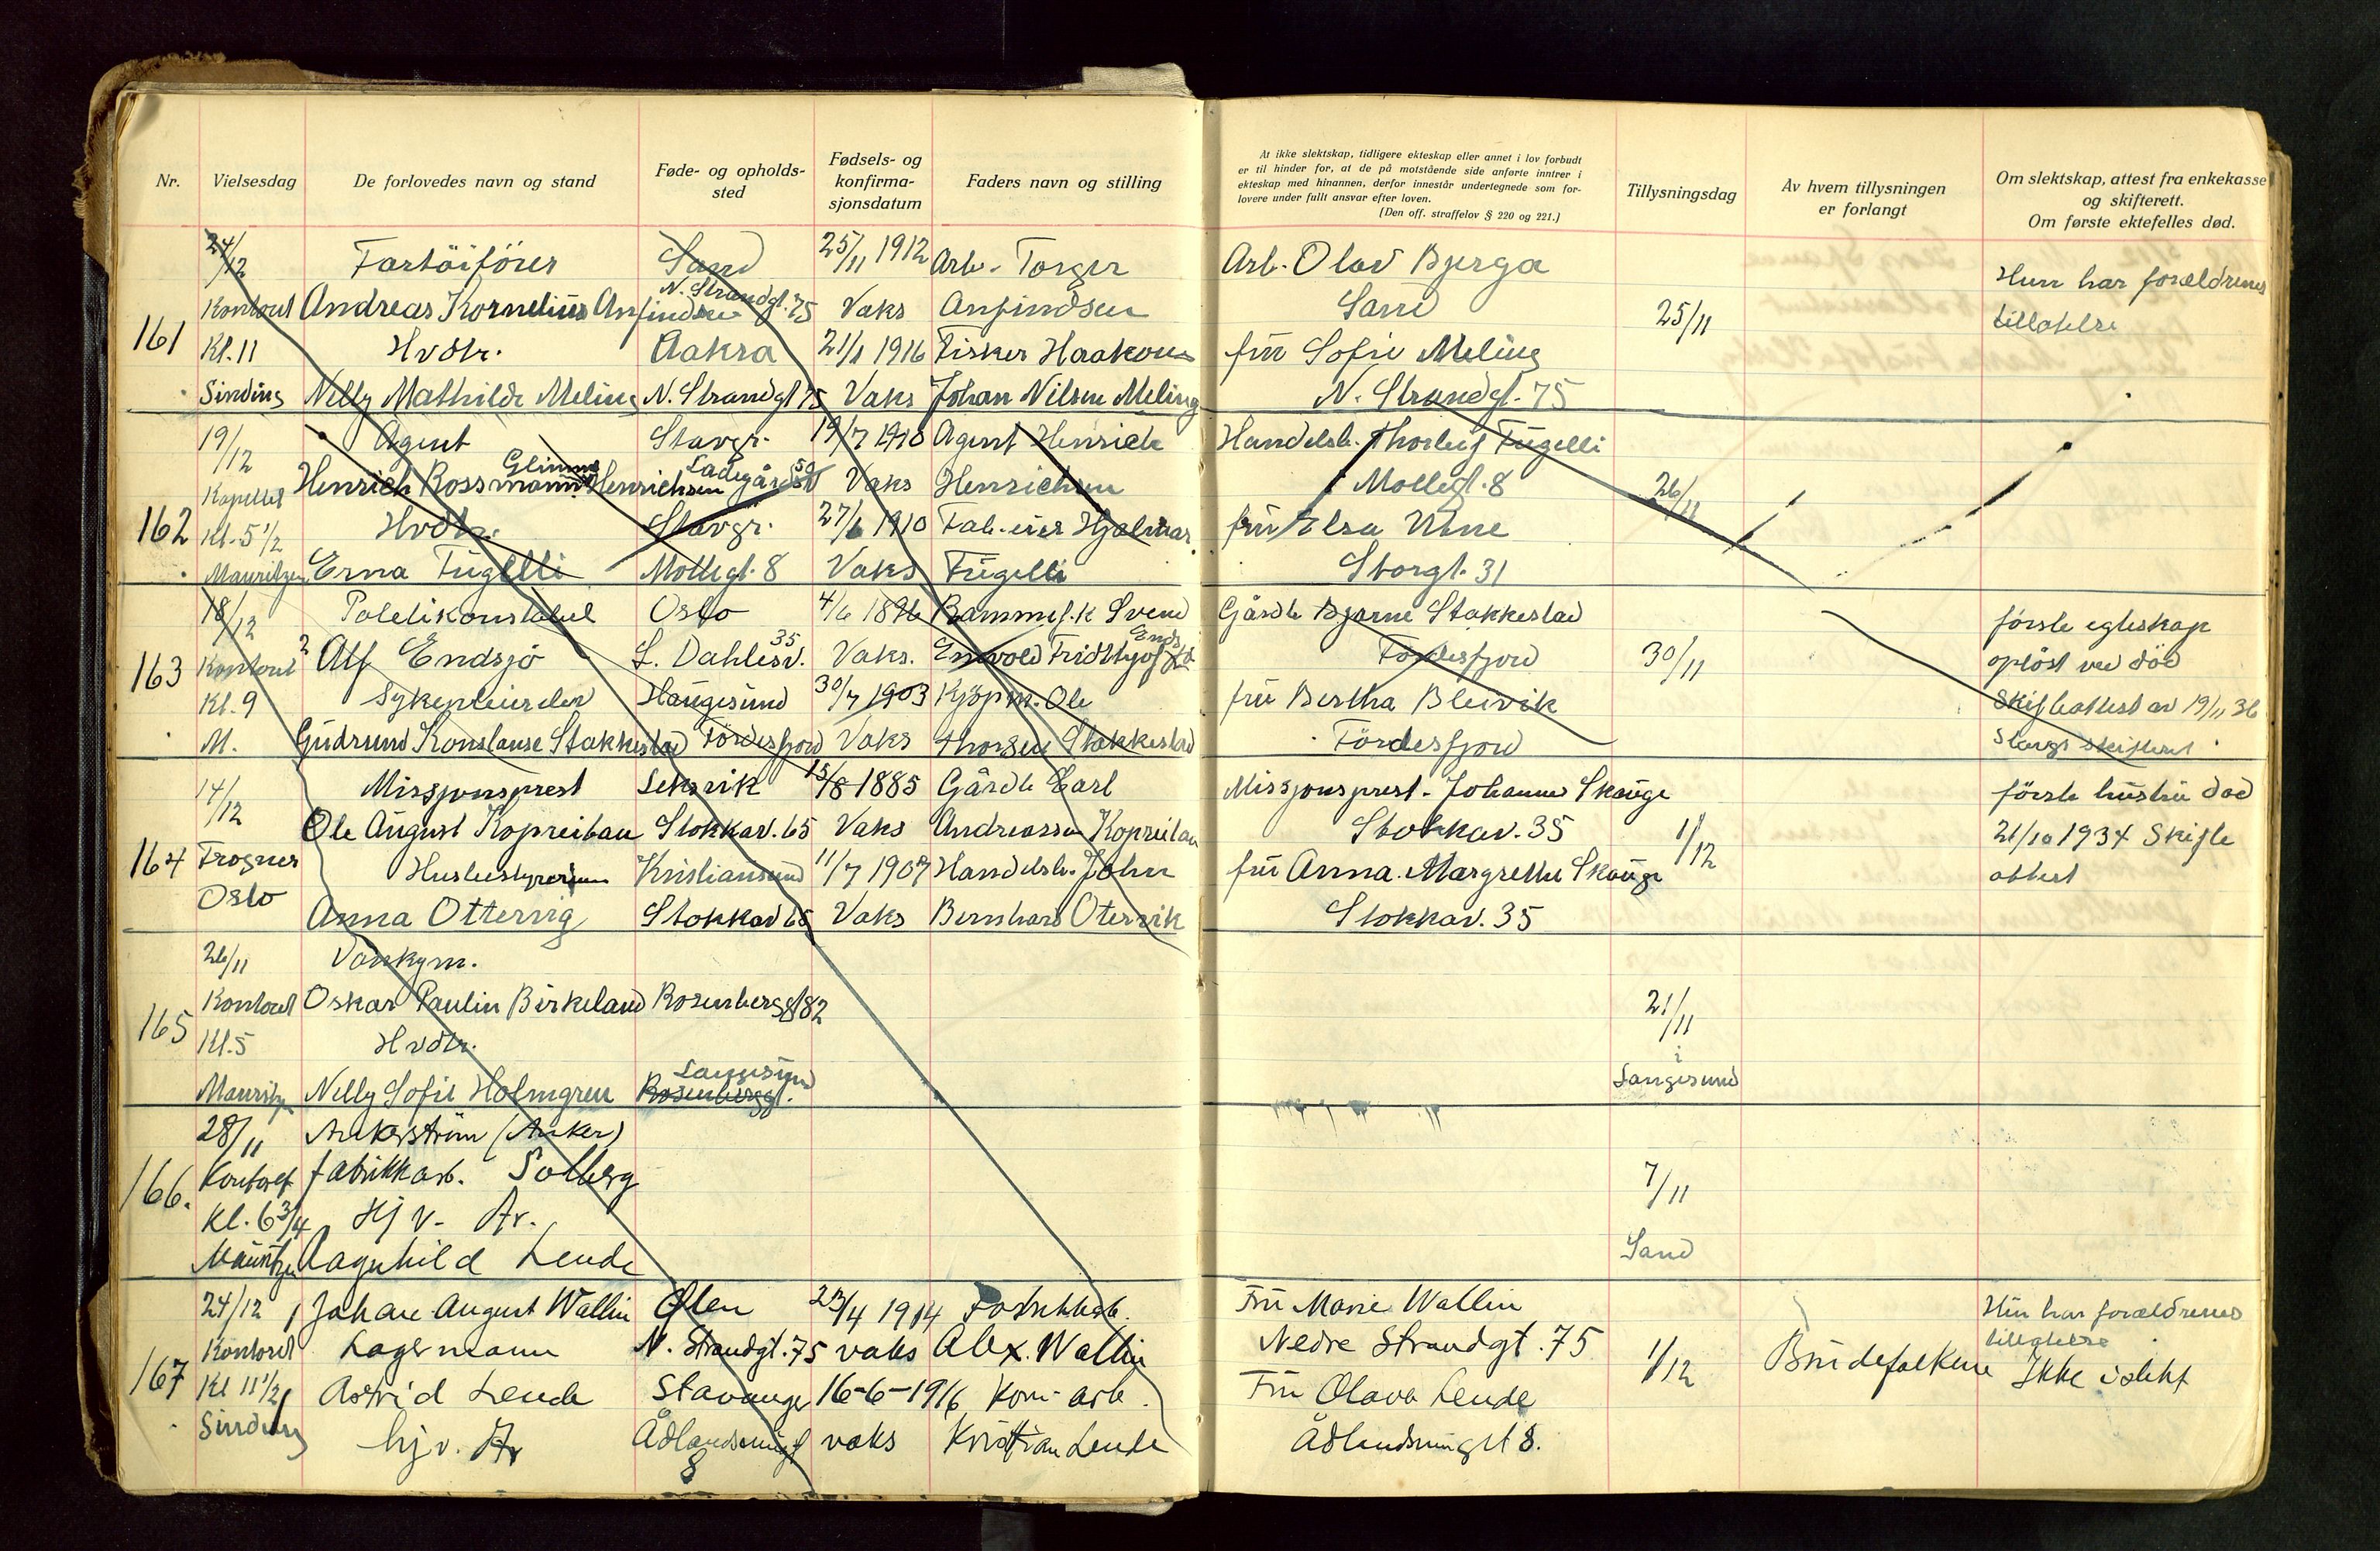 Nr. Vielsesdag De forlovedes navn og stand Føde- og opholds-sted Fødsels- og konfirma-sjonsdatum Faders navn og stilling
At ikke slektskap, tidligere ekteskap eller annet i lov forbudt
er til hinder for, at de på motstående side anførte inntrer i
ekteskap med hinannen, derfor innestår undertegnede som for-
lovere under fullt ansvar efter loven.
(Den off. straffelov § 220 og 221.)
Tillysningsdag
Av hvem tillysningen
er forlangt
Om slektskap, attest fra enkekasse
og skifterett.
Om første ektefelles død.
24/12 Fartöiförer Sand 25/11 1912 Arb. Torger Arb. Olav Bjerga
Kontoret Andreas Kornelius Anfindsen N. Strandgt. 75 Vaks Anfindsen Sand 25/11 Hun har forældrenes
161 Kl. 11 Hvdtr. Aakra 21/1 1916 Fisker Haakon fru Sofie Meling tillatelse
Sinding Nelly Mathilde Meling N. Strandgt 75 Vaks Johan Nilsen Meling N. Strandgt. 75
19/12 Agent Stavgr. 19/7 1910 Agent Henrich Handelsb. Thorleif Fugelli
Kapellet Henrich Rossmann Glimme Henrichsen Ladegårdst 50 Vaks Henrichsen Mollegt. 8 26/11
162 Kl. 5 1/2 Hvdtr. Stavgr. 27/6 1910 Fab. eier Hjalmar fru Elsa Utne
Mauritzen Erna Fugelli Mollegt. 8 Vaks Fugelli Storgt. 31
18/12 Politikonstabel Oslo 4/6 1896 Svend Gårdb Bjarne Stakkestad første egteskap
163 Kontoret Alf Endsjö L. Dahlesv. 35 Vaks. Enevold Fridthjof Endsjö Fördesfjord 30/11 opløst ved død
Kl. 9 sykepleierske Haugesund 30/7 1903 Kjöpm. Ole fru Bertha Bleivik Skifteattest av 19/11 36
M. Gudrund Konstanse Stakkestad Fördesfjord Vaks Thorsen Stakkestad Fördesfjord Stavgr skifterett
14/12 Missjonsprest Leksvik 15/8 1885 Gårdb Earl Missjonsprest. Johannes Skauge første hustru død
Ole August Kopreitan Stokkav. 65 Vaks Andreassen Kopreitan Stokkav. 35 1/12 21/10 1934 Skifte
164 Frogner Husbestyrerinne Kristiansund 11/7 1907 Handelsb. Johan fru Anna Margrethe Skauge attest
Oslo Anna Ottervig Stokkav 65 Vaks Bernhard Otervik Stokkav. 35
26/11 Vaskgm.
165 Kontoret Oskar Paulin Birkeland Rosenberggt 82 21/11
Kl. 5 Hvdtr. i
Mauritzen Nelly Sofie Holmgren Langesund Rosenberggt. Langesund
28/11 Ankerström (Anker)
166. Kontoret fabrikkarb. Solberg 7/11
Kl. 6 3/4 Hj v. Ar.
Mauritzen Ragnhild Lende Sand
24/12 Johan August Wallin Ølen 23/4 1914 Fabrikkarb. Fru Marie Wallin Hun har forældrenes
Kontoret Lagermann N. Strandgt. 75 vaks Alex. Wallin Nedre Strandgt. 75 1/12 Brudefolkene tillatelse
167 Kl 11 1/2 Astrid Lende Stavanger 16-6-1916 Kom. arb. Fru Olava Lende Ikke i slekt
Sinding hjv. Ar Ådlandsmigt 8 vaks Kristian Lende Ådlandsmigt 8.